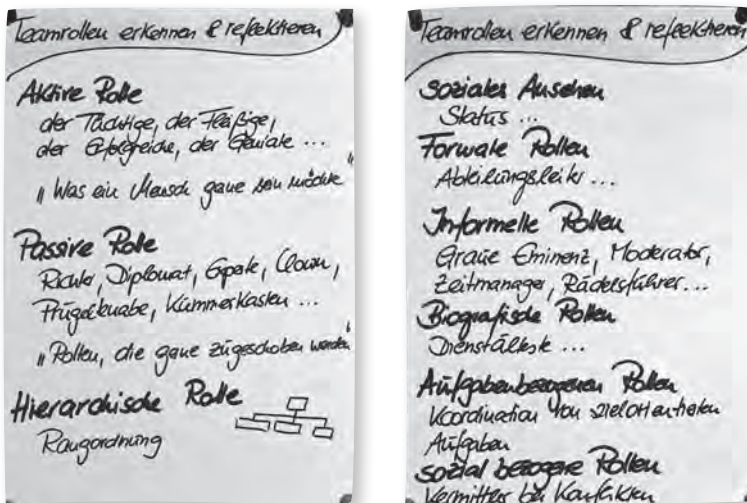 Teamrollen erkennen & reflektieren
Aktive Rolle
der Tüchtige, der Fleißige,
der Erfolgreiche, der Geniale ...
„Was ein Mensch gerne sein möchte"
Passive Rolle
Richter, Diplomat, Experte, Clown,
Prügelknabe, Kummerkasten ...
„Rollen, die gerne zugeschoben werden"
Hierarchische Rolle
Rangordnung
Teamrollen erkennen & reflektieren
Soziales Ansehen
Status ...
Formale Rollen
Abteilungsleiter ...
Informelle Rollen
Graue Eminenz, Moderator,
Zeitmanager, Rädelsführer...
Biografische Rollen
Dienstälteste ...
Aufgabenbezogenen Rollen
Koordination von zielorientierten
Aufgaben
sozial bezogene Rollen
Vermittler bei Konflikten